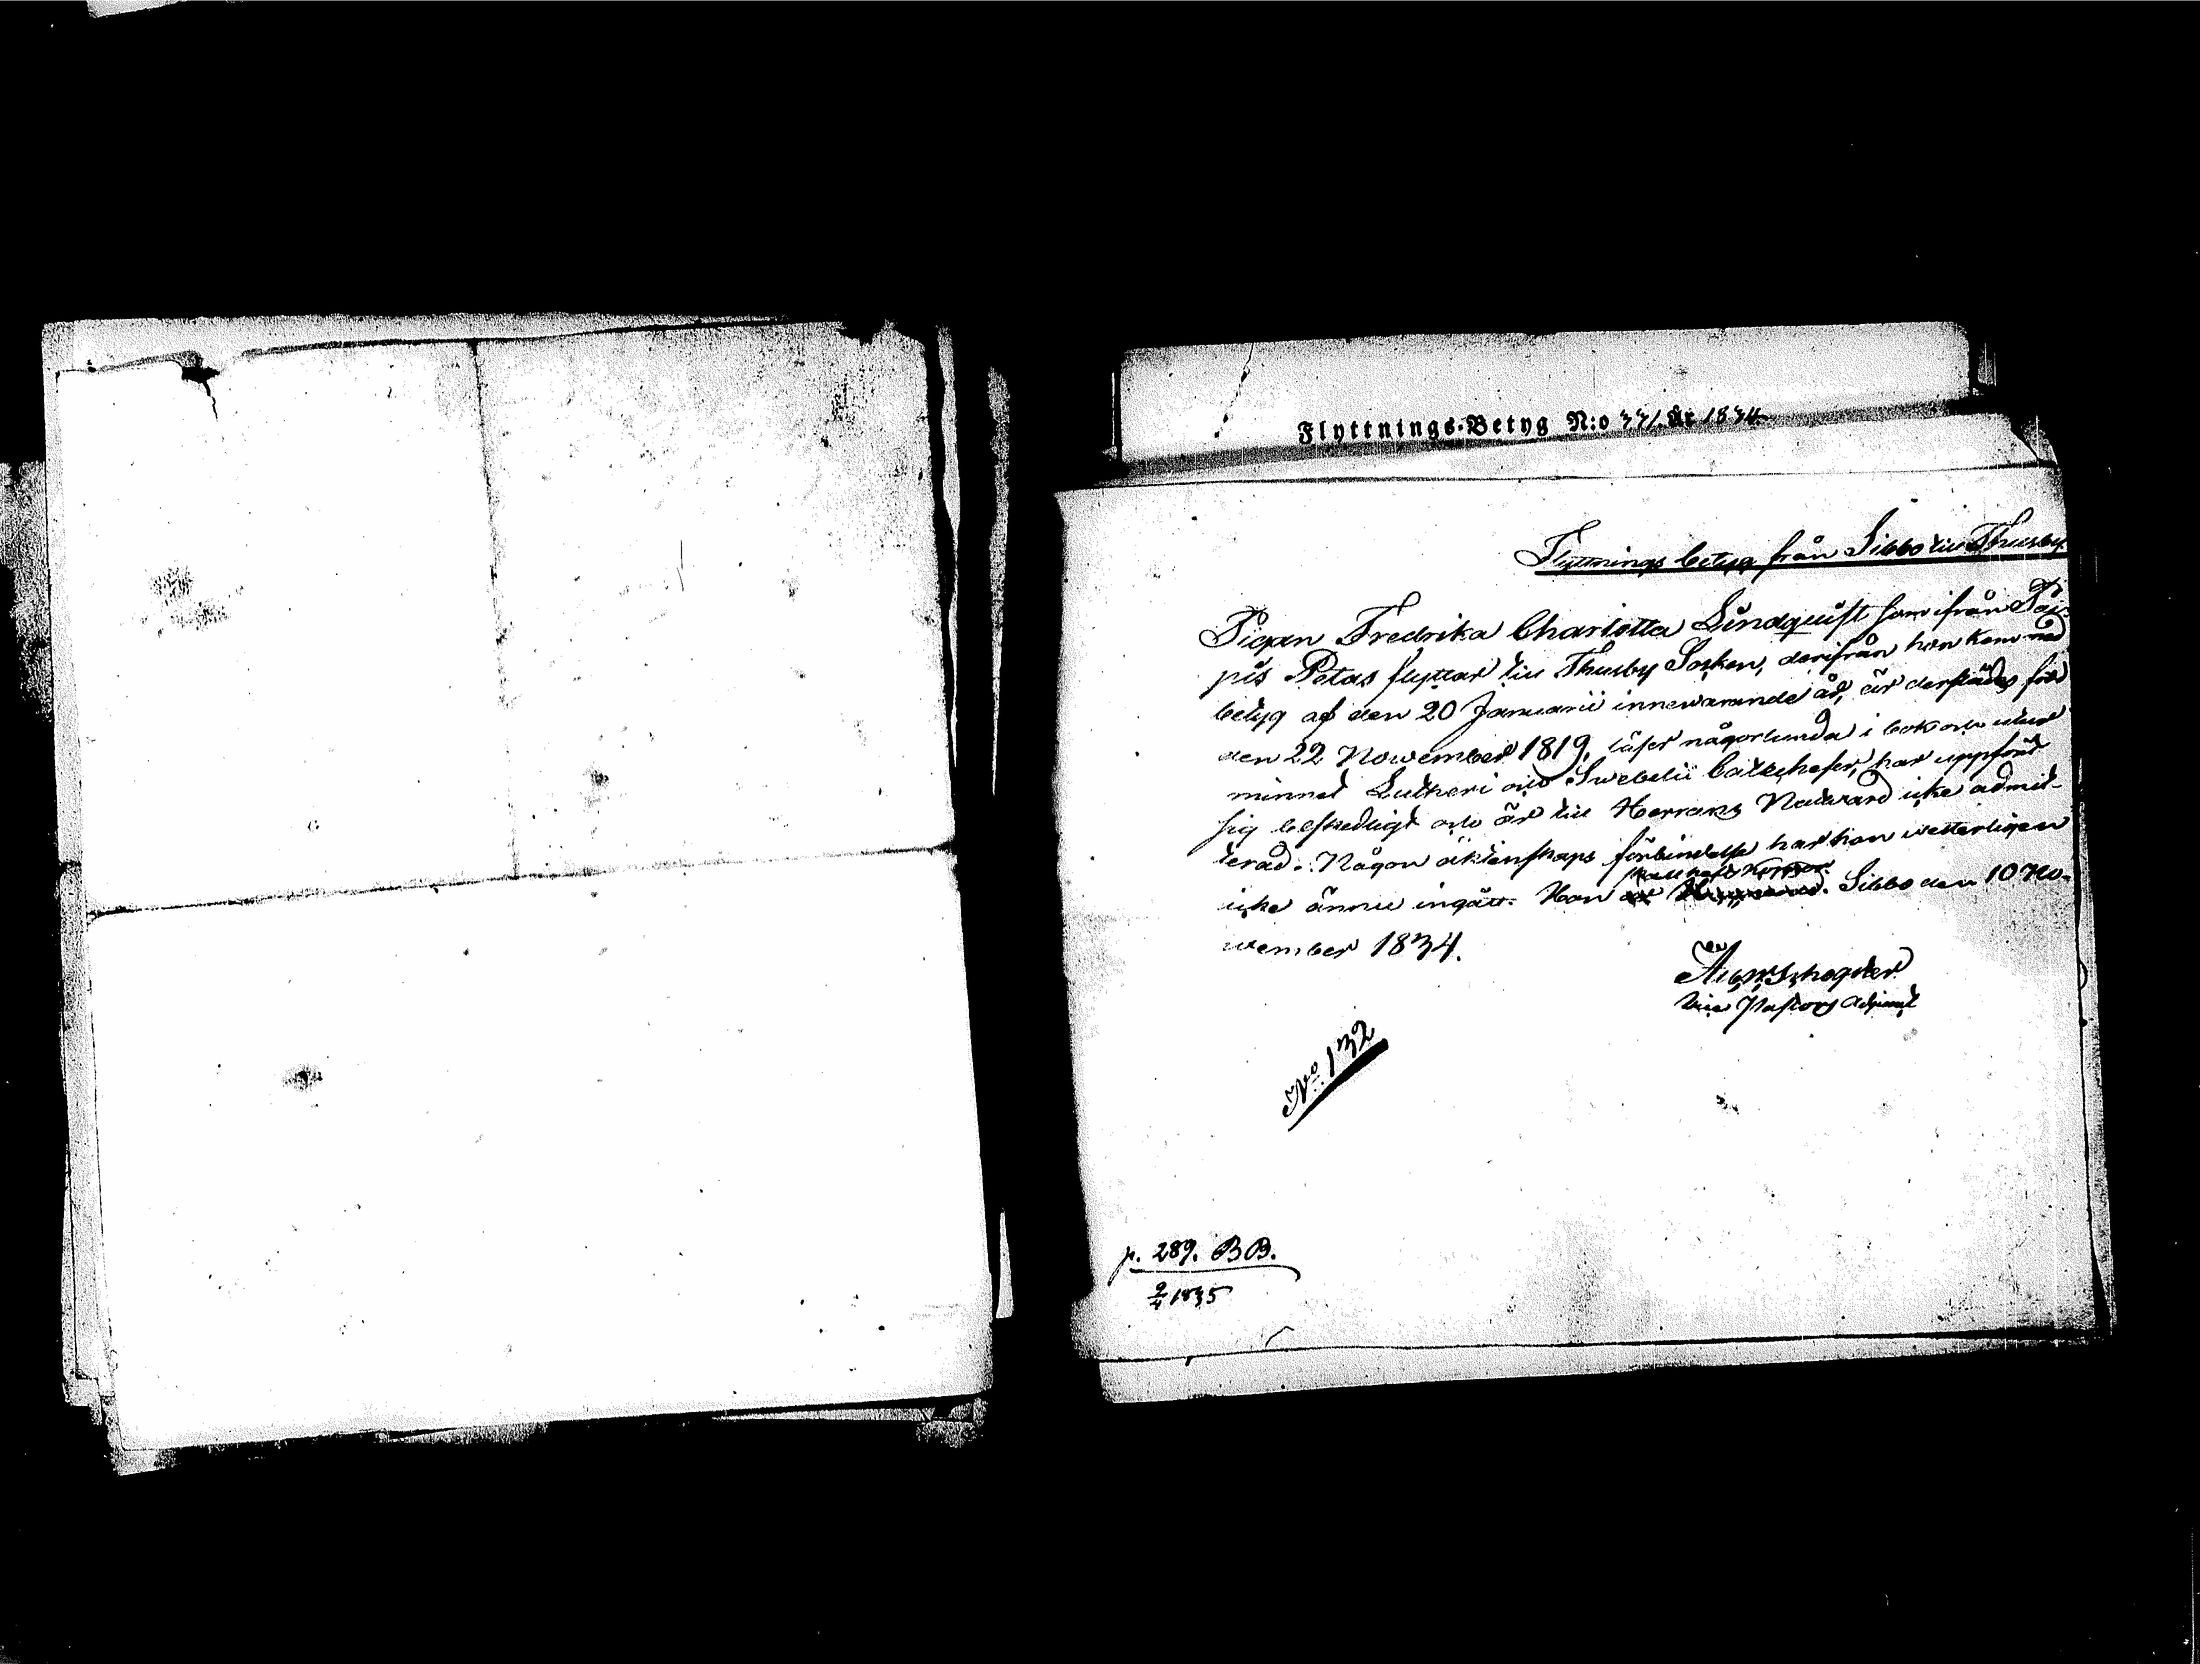 Flyttnings-Betyg N:o 371. År 1834
Flyttnings betyg från Sibbo till Thusby
Pigan Fredrika Charlotta Lindquist som ifrån Tai-
pis Petas flyttar till Thusby Socken, derifrån hon kom med
betyg af den 20 Januarii innewarande år, är derstädes född
den 22 November 1819, läser någorlunda i bok och utur
minnet Lutheri och Swebelii Catecheser, har uppfört
sig beskedligt och är till Herrans Nattvard icke admit-
terad. Någon äktenskaps förbindelse har hon wetterligen
icke ännu ingått. Hon Sibbo den 10 No-
vember 1834.
Vice Pastors Adjunct
No 132
p. 289. BB.
2/4 1835